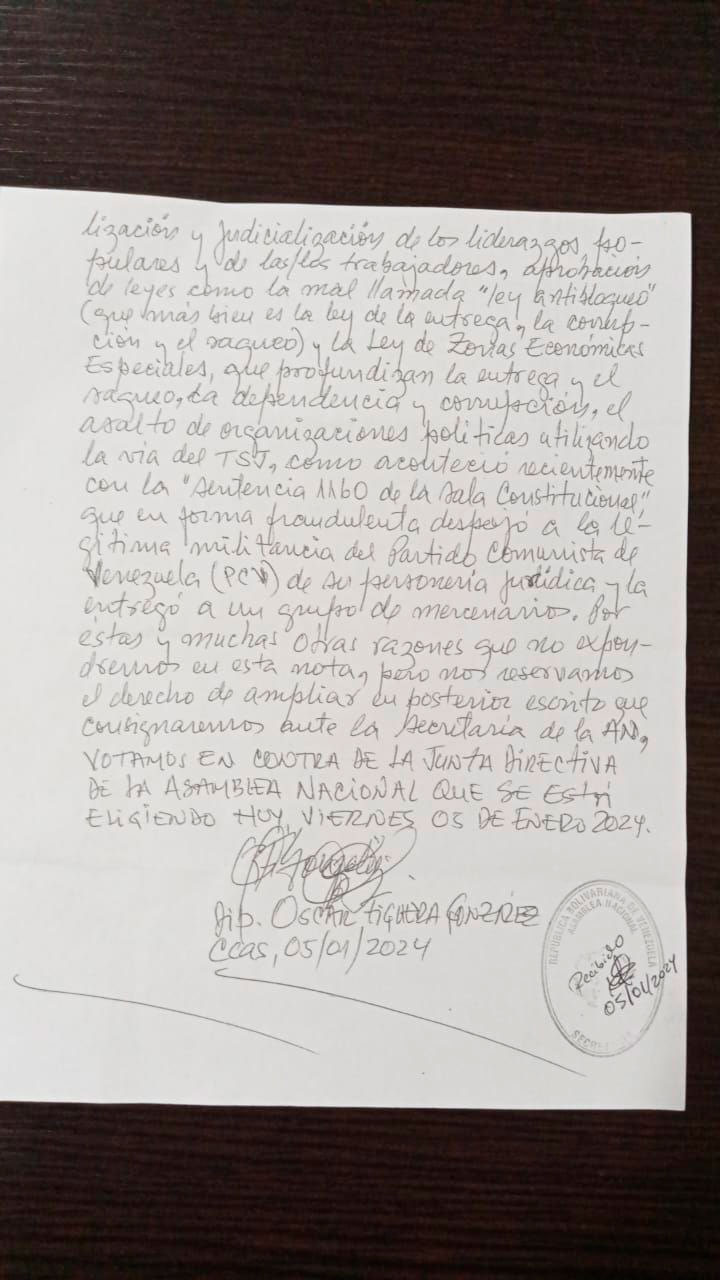 lización y judicialización de los liderazgos po-
pulares y de las/los trabajadores, aprobación
de leyes como la mal llamada "ley antibloqueo"
(que más bien es la ley de la entrega, la corrup-
ción y el saqueo) y la Ley de Zonas Económicas
Especiales, que profundizan la entrega y el
saqueo, la dependencia y corrupción, el
asalto de organizaciones políticas utilizando
la vía del TSJ, como aconteció recientemente
con la "Sentencia 1160 de la Sala Constitucional"
que en forma fraudulenta despojó a la le-
gítima militancia del Partido Comunista de
Venezuela (PCV) de su personería jurídica y la
entregó a un grupo de mercenarios. Por
éstas y muchas otras razones que no expon-
dremos en esta nota, pero nos reservamos
el derecho de ampliar en posterior escrito que
consignaremos ante la Secretaría de la AN,
VOTAMOS EN CONTRA DE LA JUNTA DIRECTIVA
DE LA ASAMBLEA NACIONAL QUE SE ESTÁ
ELIGIENDO HUY, VIERNES 05 DE ENERO 2024.
Dip. OSCAR FIGUERA GONZÁLEZ
Ccas, 05/01/2024
REPUBLICA BOLIVARIANA DE VENEZUELA
ASAMBLEA NACIONAL
Recibido
05/01/2024